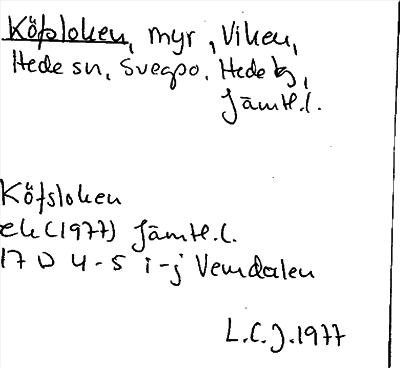 Köfsloken, myr, Viken,
Hede sn, Svegpo, Hede tg,
Jämtl.l.
Köfsloken
ek (1977) Jämtl.l.
17 D 4-5 i-j Vemdalen
L.C.J. 1977